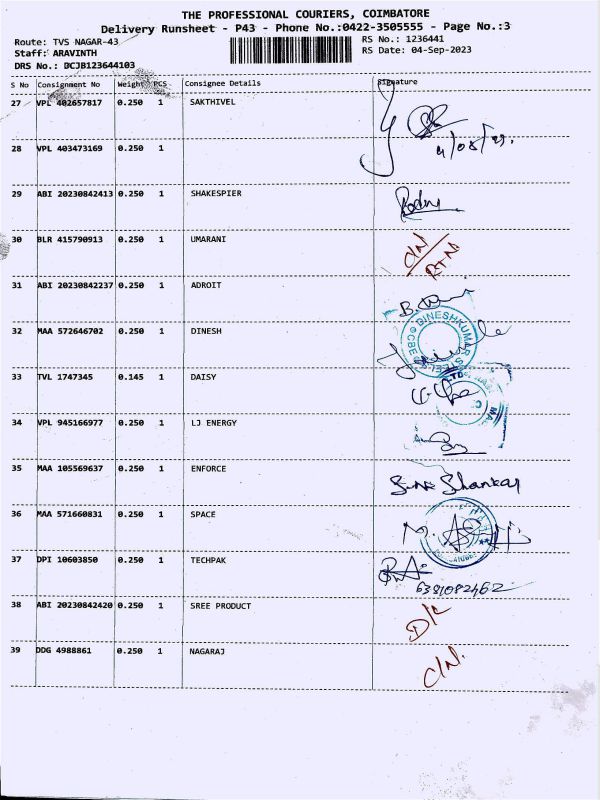 THE PROFESSIONAL COURIERS, COIMBATORE
Delivery Runsheet - P43 - Phone No.:0422-3505555 - Page No.:3
Route: TVS NAGAR-43
RS No.: 1236441
Staff: ARAVINTH
RS Date: 04-Sep-2023
DRS No.: DCJB123644103
S No Consignment No Weight PCS Consignee Details Signature
27 VPL 402657817 0.250 1 SAKTHIVEL
28 VPL 403473169 0.250 1
29 ABI 20230842413 0.250 1 SHAKESPIER
30 BLR 415790913 0.250 1 UMARANI C/N RTN
31 ABI 20230842237 0.250 1 ADROIT
BINESHKUMAR
32 MAA 572646702 0.250 1 DINESH
33 TVL 1747345 0.145 1 DAISY
34 VPL 945166977 0.250 1 LJ ENERGY
35 MAA 105569637 0.250 1 ENFORCE
36 MAA 571660831 0.250 1 SPACE
37 DPI 10603850 0.250 1 TECHPAK
6381082462
38 ABI 20230842420 0.250 1 SREE PRODUCT D/C
39 DDG 4988861 0.250 1 NAGARAJ C/N.